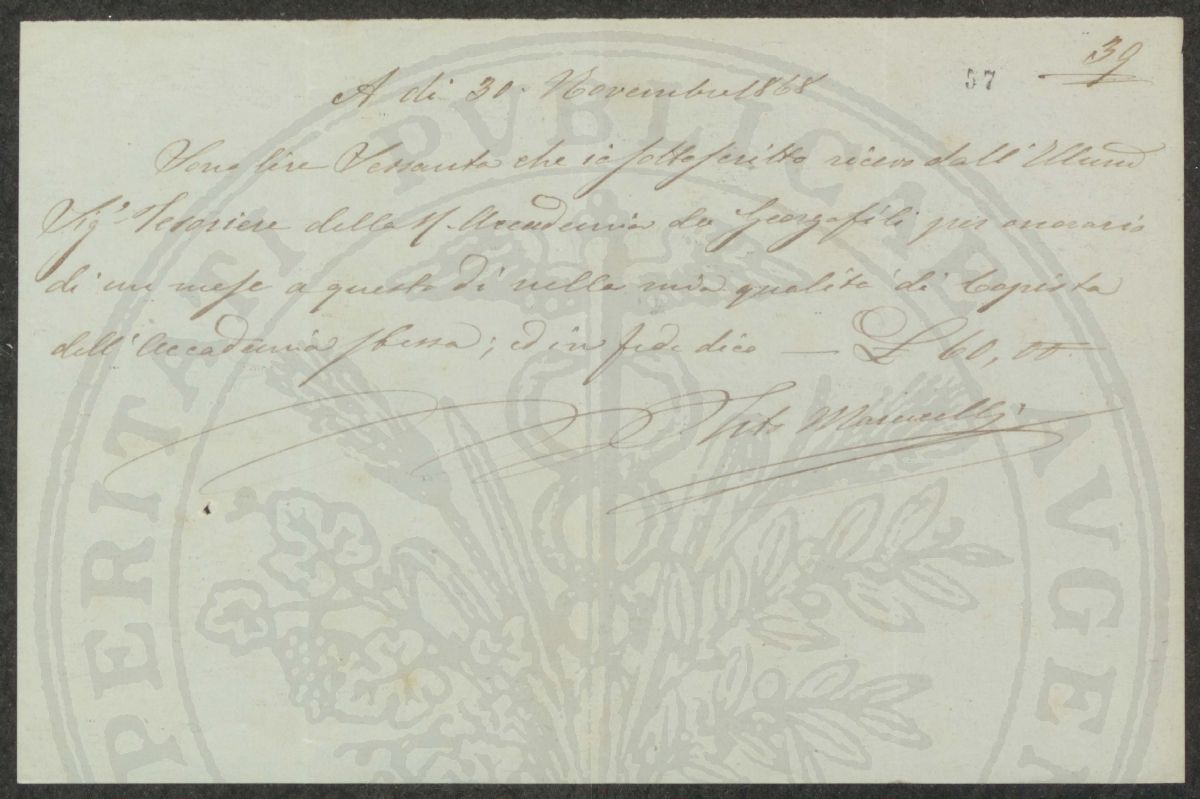 39
37
A di 30. Novembre 1868
Sono lire Sessanta che io sottoscritto ricevo dall'Illmo
Sigr Tesoriere della R. Accademia dei Georgofili per onorario
di un mese a questo di nella mia qualità di Copista
dell'Accademia stessa; ed in fede dico — £ 60,00
Tito
PROSPERITATI PVBLICAE AVGE